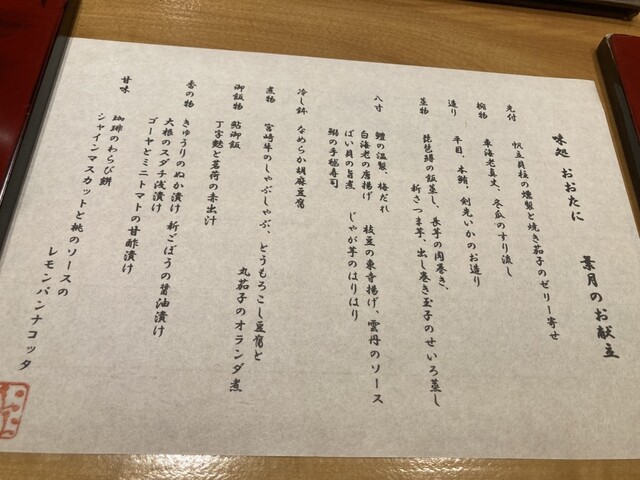 味処 おおたに 葉月のお献立
先付
帆立貝柱の燻製と焼き茄子のゼリー寄せ
椀物
車海老真丈、冬瓜のすり流し
造り
平目、本鮪、剣先いかのお造り
蒸物
琵琶鱒の飯蒸し、長芋の肉巻き、
新さつま芋、出し巻き玉子のせいろ蒸し
八寸
鱧の温製、梅だれ
白海老の唐揚げ 枝豆の東寺揚げ、雲丹のソース
ばい貝の旨煮 じゃが芋のはりはり
鯛の手毬寿司
冷し鉢 なめらか胡麻豆腐
煮物 宮崎牛のしゃぶしゃぶ、とうもろこし豆腐と
丸茄子のオランダ煮
御飯物 鮎御飯
丁字麩と茗荷の赤出汁
香の物 きゅうりのぬか漬け 新ごぼうの醤油漬け
大根のスダチ浅漬け
ゴーヤとミニトマトの甘酢漬け
甘味
珈琲のわらび餅
シャインマスカットと桃のソースの
レモンパンナコッタ